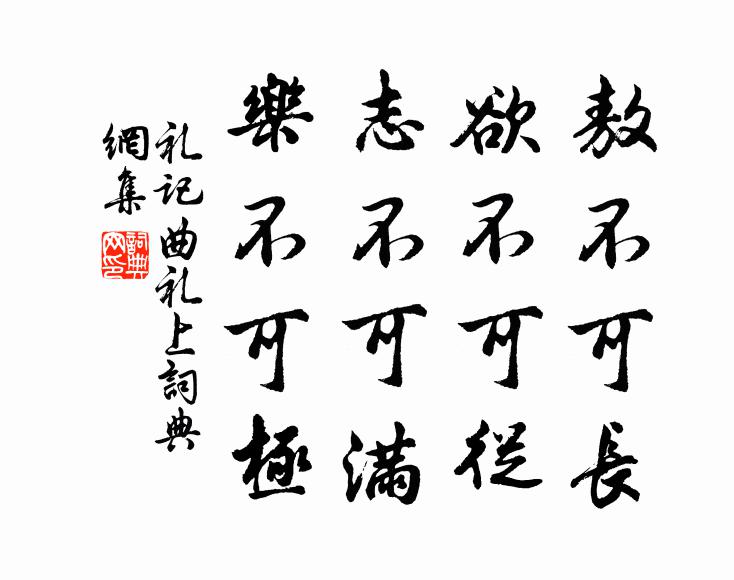 敖不可長
欲不可從
志不可滿
樂不可極
礼記曲礼上詞典
網集
詞典
网印